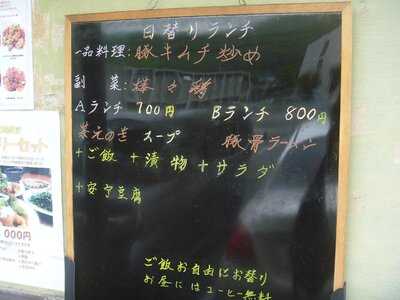 日替りランチ
一品料理:豚キムチ炒め
副 菜:棒々鶏
Aランチ 700円 Bランチ 800円
スープ 豚骨ラーメン
+ご飯+漬物+サラダ
+安宁豆腐
ご飯お自由にお替り
お昼にはコーヒー無料
リーセット
000円